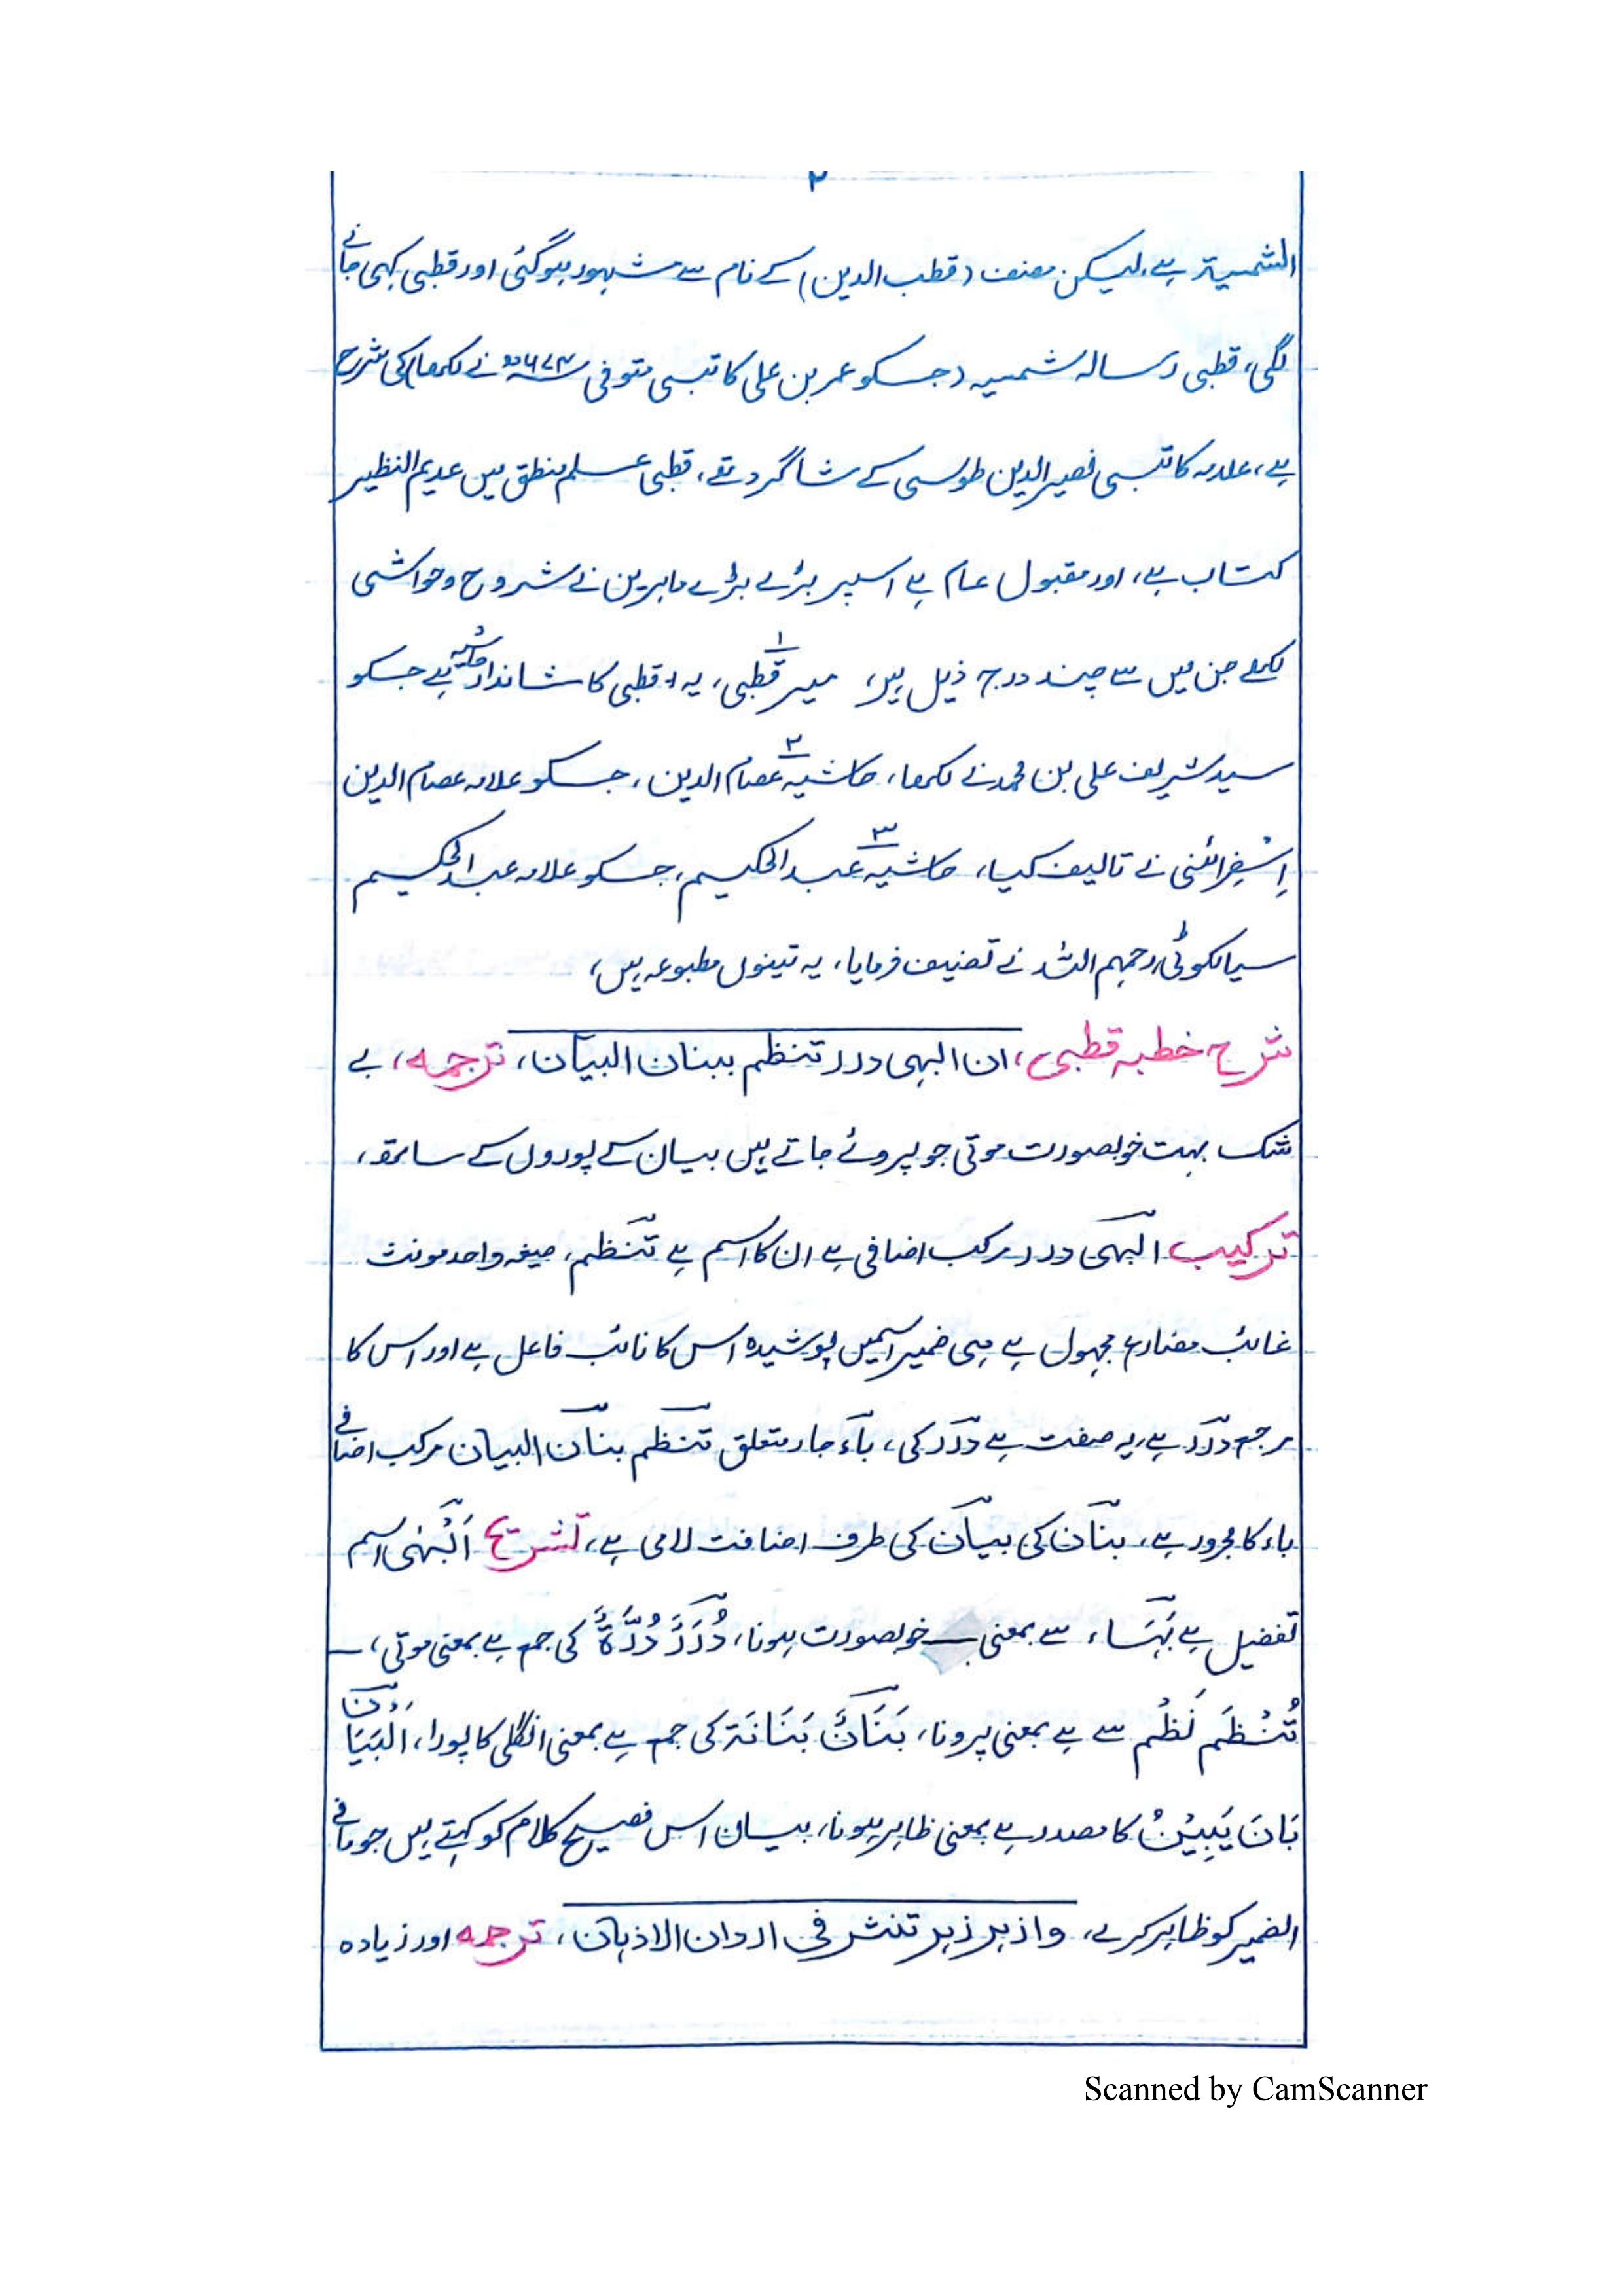 ۲
الشمسیۃ ہے، لیکن مصنف (قطب الدین) کے نام سے مشہور ہوگئی اور قطبی کہی جانے
لگی، قطبی رسالہ شمسیہ (جسکو عمر بن علی کاتبی متوفی نے لکھا) کی شرح
ہے، علامہ کاتبی نصیر الدین طوسی کے شاگرد تھے، قطبی علم منطق میں عدیم النظیر
کتاب ہے، اور مقبول عام ہے اسپر بڑے بڑے ماہرین نے شروح و حواشی
لکھے جن میں سے چند درج ذیل ہیں، ۱ میر قطبی، یہ قطبی کا شاندار حاشیہ ہے جسکو
سید شریف علی بن محمد نے لکھا، ۲ حاشیہ عصام الدین، جسکو علامہ عصام الدین
اِسْفِرائنی نے تالیف کیا، ۳ حاشیہ عبد الحکیم، جسکو علامہ عبد الحکیم
سیالکوٹی رحمہم اللہ نے تصنیف فرمایا، یہ تینوں مطبوعہ ہیں،
شرح خطبہ قطبی، ان ابہی درر تنظم ببنان البیان، ترجمہ، بے
شک بہت خوبصورت موتی جو پروئے جاتے ہیں بیان کے پوروں کے ساتھ،
ترکیب ابہی درر مرکب اضافی ہے ان کا اسم ہے تنظم، صیغہ واحد مونث
غائب مضارع مجہول ہے ہی ضمیر اسمیں پوشیدہ اس کا نائب فاعل ہے اور اس کا
مرجع درر ہے، یہ صفت ہے درر کی، باء جار متعلق تنظم بنان البیان مرکب اضافی
باء کا مجرور ہے، بنان کی بیان کی طرف اضافت لامی ہے، تشریح اَبْہٰی اسم
تفضیل ہے بَہَاء سے بمعنی خوبصورت ہونا، دُرَرٌ دُرَّۃٌ کی جمع ہے بمعنی موتی،
تُنْظَم نَظْم سے ہے بمعنی پرونا، بَنَانٌ بَنَانَۃ کی جمع ہے بمعنی انگلی کا پورا، اَلْبَیَانُ
بَانَ یَبِیْنُ کا مصدر ہے بمعنی ظاہر ہونا، بیان اس فصیح کلام کو کہتے ہیں جو مافی
الضمیر کو ظاہر کرے، وازہر زہر تنثر فی اردان الاذہان، ترجمہ اور زیادہ
Scanned by CamScanner